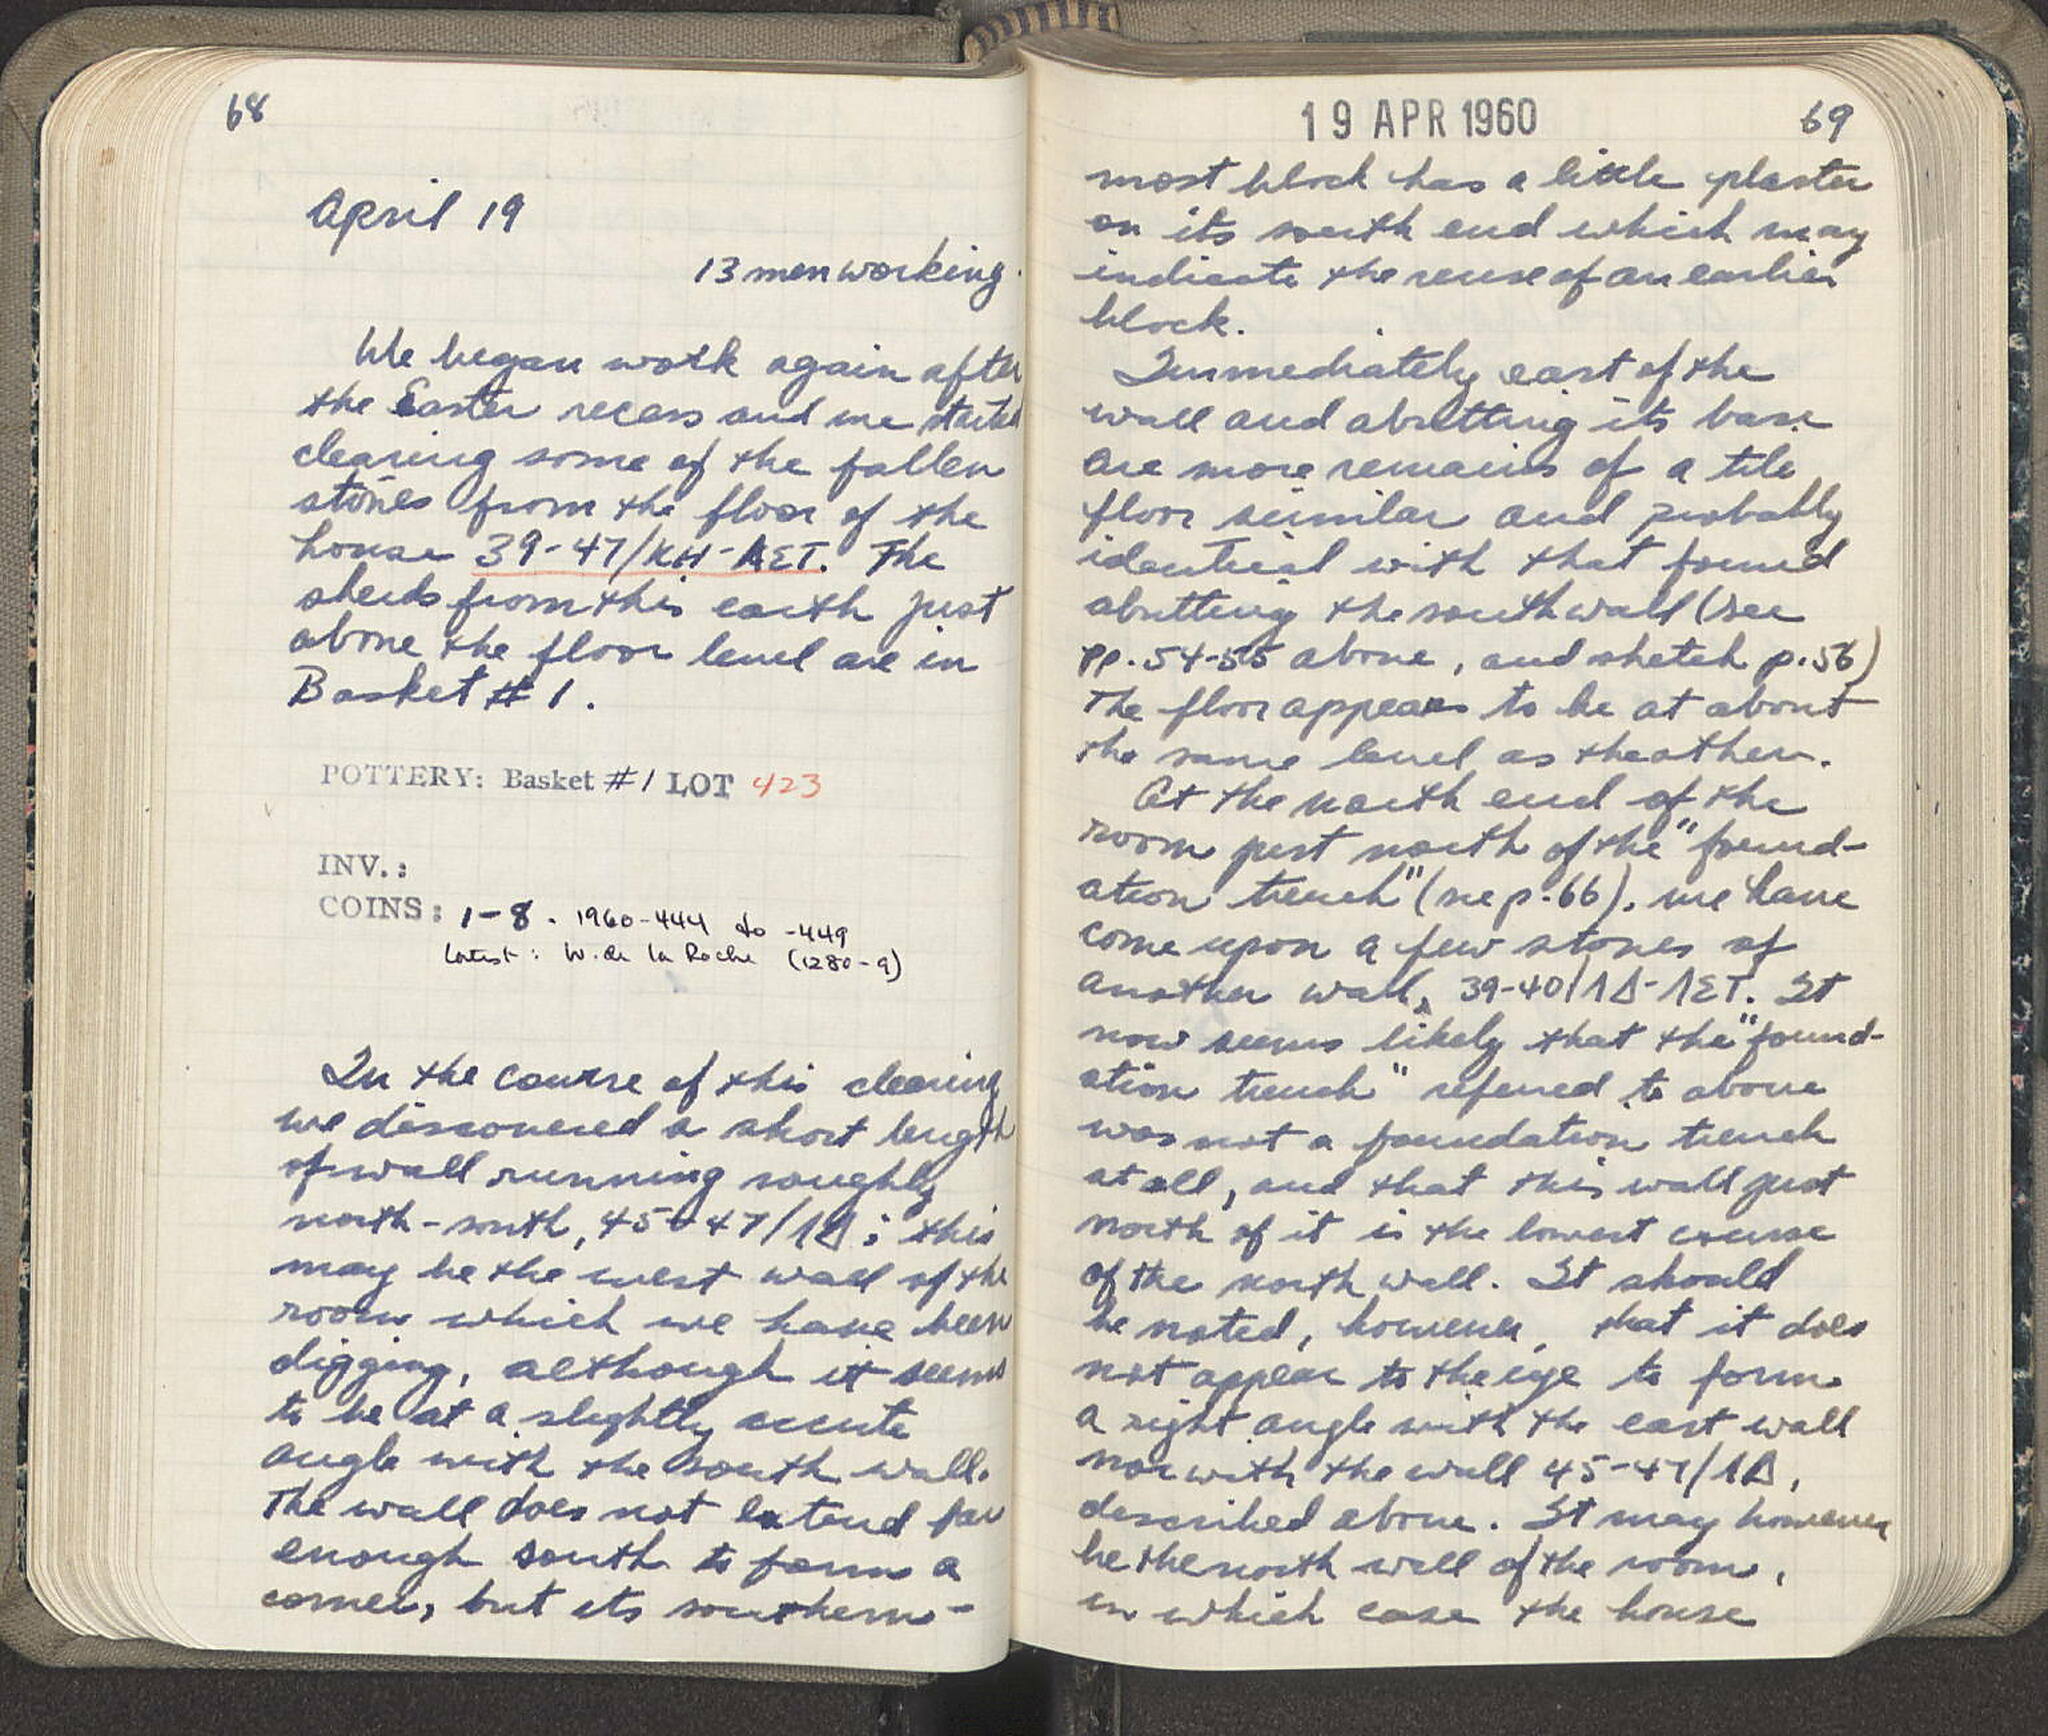 68
April 19
13 men working.
We began work again after
the Easter recess and we started
clearing some of the fallen
stones from the floor of the
house 39-47/ΚΗ-ΛΣΤ. The
sherds from this earth just
above the floor level are in
Basket #1.
POTTERY: Basket #1 LOT 423
INV.:
COINS: 1-8. 1960-444 to -449
Latest: W. de la Roche (1280-9)
In the course of this clearing
we discovered a short length
of wall running roughly
north-south, 45-47/ΛΔ; this
may be the west wall of the
room which we have been
digging, although it seems
to be at a slightly acute
angle with the south wall.
The wall does not extend far
enough south to form a
corner, but its southern-
19 APR 1960
69
most block has a little plaster
on its south end which may
indicate the reuse of an earlier
block.
Immediately east of the
wall and abutting its base
are more remains of a tile
floor similar and probably
identical with that found
abutting the south wall (see
pp. 54-55 above, and sketch p. 56)
The floor appears to be at about
the same level as the other.
At the north end of the
room just north of the "found-
ation trench" (see p. 66), we have
come upon a few stones of
another wall, 39-40/ΛΔ-ΛΣΤ. It
now seems likely that the "found-
ation trench" referred to above
was not a foundation trench
at all, and that this wall just
north of it is the lowest course
of the north wall. It should
be noted, however, that it does
not appear to the eye to form
a right angle with the east wall
nor with the wall 45-47/ΛΔ,
described above. It may however
be the north wall of the room,
in which case the house